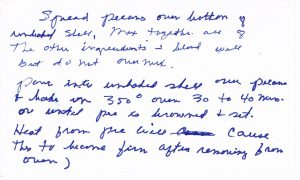 Spread pecans over bottom of
unbaked shell, Mix together all of
the other ingredients & blend well
but do not overmix.
pour into unbaked shell over pecans
& bake in 350° oven 30 to 40 min.
or until pie is browned & set.
Heat from pie will cause
this to become firm after removing from
oven)